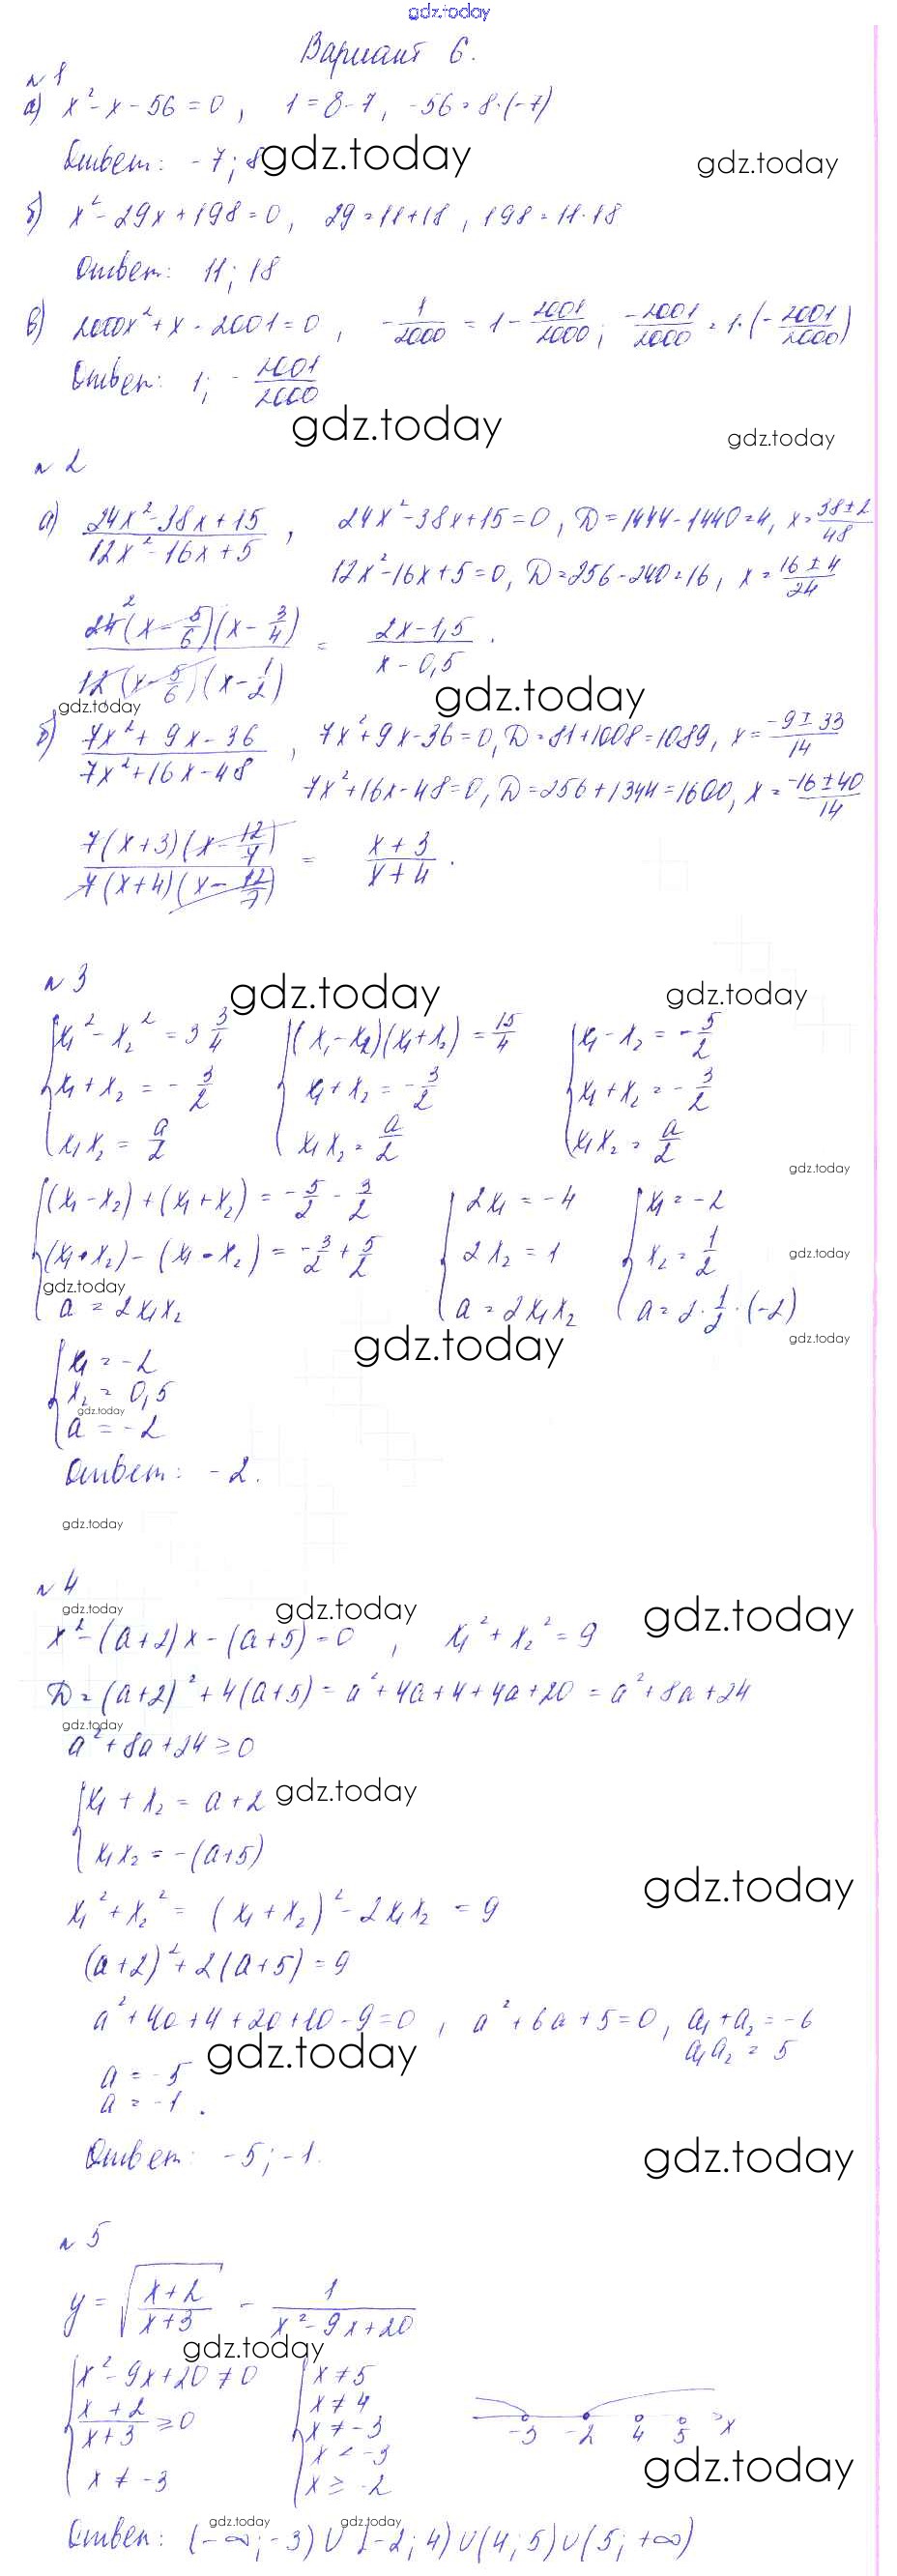 gdz.today
Вариант 6.
№1
а) x² - x - 56 = 0, 1 = 8 - 7, -56 = 8·(-7)
Ответ: -7; 8
gdz.today
gdz.today
б) x² - 29x + 198 = 0, 29 = 11 + 18, 198 = 11·18
Ответ: 11; 18
в) 2000x² + x - 2001 = 0, -1/2000 = 1 - 2001/2000; -2001/2000 = 1·(-2001/2000)
Ответ: 1; -2001/2000
gdz.today
gdz.today
№2
а) (24x² - 38x + 15)/(12x² - 16x + 5), 24x² - 38x + 15 = 0, D = 1444 - 1440 = 4, x = (38 ± 2)/48
12x² - 16x + 5 = 0, D = 256 - 240 = 16, x = (16 ± 4)/24
24(x - 5/6)(x - 3/4) / 12(x - 5/6)(x - 1/2) = (2x - 1,5)/(x - 0,5).
gdz.today
gdz.today
б) (7x² + 9x - 36)/(7x² + 16x - 48), 7x² + 9x - 36 = 0, D = 81 + 1008 = 1089, x = (-9 ± 33)/14
7x² + 16x - 48 = 0, D = 256 + 1344 = 1600, x = (-16 ± 40)/14
7(x + 3)(x - 12/7) / 7(x + 4)(x - 12/7) = (x + 3)/(x + 4).
№3
gdz.today
gdz.today
x₁² - x₂² = 3 3/4 (x₁ - x₂)(x₁ + x₂) = 15/4 x₁ - x₂ = -5/2
x₁ + x₂ = -3/2 x₁ + x₂ = -3/2 x₁ + x₂ = -3/2
x₁x₂ = a/2 x₁x₂ = a/2 x₁x₂ = a/2
gdz.today
(x₁ - x₂) + (x₁ + x₂) = -5/2 - 3/2 2x₁ = -4 x₁ = -2
(x₁ + x₂) - (x₁ - x₂) = -3/2 + 5/2 2x₂ = 1 x₂ = 1/2
gdz.today
gdz.today
a = 2x₁x₂ a = 2x₁x₂ a = 2·1/2·(-2)
gdz.today
gdz.today
x₁ = -2
x₂ = 0,5
gdz.today
a = -2
Ответ: -2.
gdz.today
№4
gdz.today
gdz.today
gdz.today
x² - (a+2)x - (a+5) = 0, x₁² + x₂² = 9
D = (a+2)² + 4(a+5) = a² + 4a + 4 + 4a + 20 = a² + 8a + 24
gdz.today
a² + 8a + 24 ≥ 0
gdz.today
x₁ + x₂ = a + 2
x₁x₂ = -(a+5)
gdz.today
x₁² + x₂² = (x₁ + x₂)² - 2x₁x₂ = 9
(a+2)² + 2(a+5) = 9
a² + 4a + 4 + 2a + 10 - 9 = 0, a² + 6a + 5 = 0, a₁ + a₂ = -6
a₁a₂ = 5
gdz.today
a = -5
a = -1.
Ответ: -5; -1.
gdz.today
№5
y = √((x+2)/(x+3)) - 1/(x² - 9x + 20)
gdz.today
x² - 9x + 20 ≠ 0 x ≠ 5
x ≠ 4
(x+2)/(x+3) ≥ 0 x ≠ -3
x < -3
x ≠ -3 x ≥ -2
-3 -2 4 5 x
gdz.today
gdz.today
gdz.today
Ответ: (-∞; -3) ∪ [-2; 4) ∪ (4; 5) ∪ (5; +∞)